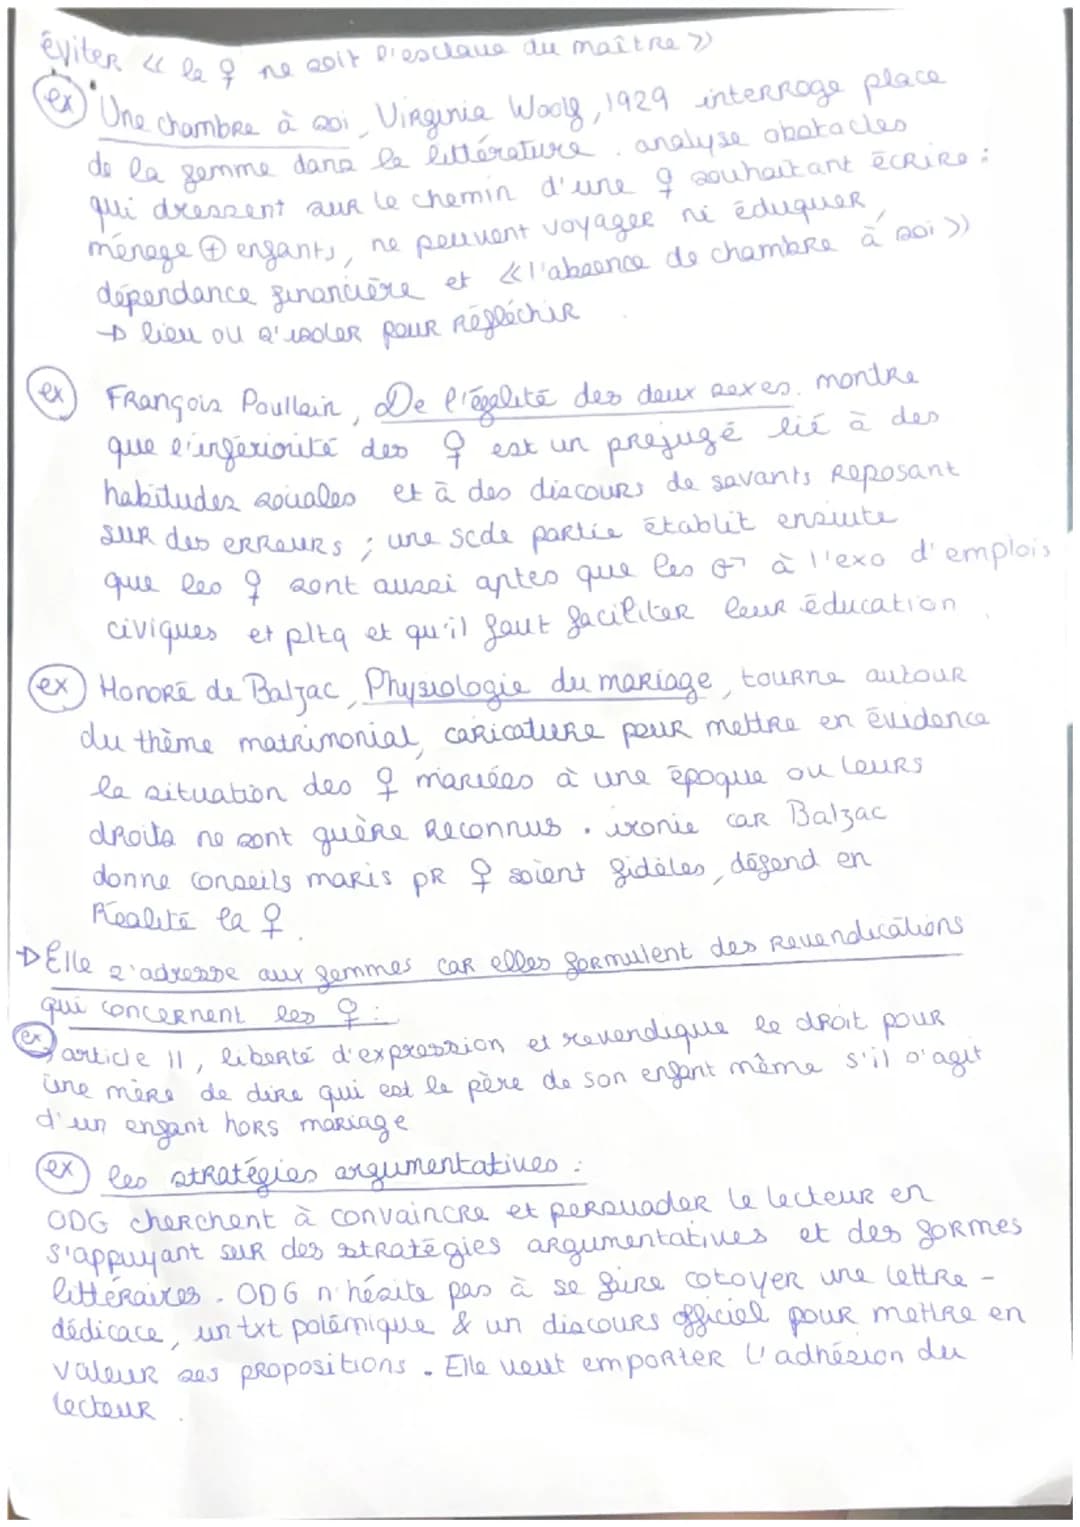 éviter << la ♀ ne soit l'esclave du maître >>
ex Une chambre à soi, Virginia Woolf, 1929 interroge place
de la femme dans la littérature. analyse obstacles
qui dressent sur le chemin d'une ♀ souhaitant écrire :
ménage ⊕ enfants, ne peuvent voyager ni éduquer,
dépendance financière et << l'absence de chambre à soi >>
→ lieu où s'isoler pour réfléchir
ex François Poullain, De l'égalité des deux sexes. montre
que l'infériorité des ♀ est un préjugé lié à des
habitudes sociales et à des discours de savants reposant
sur des erreurs ; une scde partie établit ensuite
que les ♀ sont aussi aptes que les ♂ à l'exo d'emplois
civiques et pltq et qu'il faut faciliter leur éducation.
ex Honoré de Balzac, Physiologie du mariage, tourne autour
du thème matrimonial, caricature pour mettre en évidence
la situation des ♀ mariées à une époque ou leurs
droits ne sont guère reconnus. ironie car Balzac
donne conseils maris pr ♀ soient fidèles, défend en
Réalité la ♀.
→ Elle s'adresse aux femmes car elles formulent des revendications
qui concernent les ♀ :
ex article 11, liberté d'expression et revendique le droit pour
une mère de dire qui est le père de son enfant même s'il s'agit
d'un enfant hors mariage
ex les stratégies argumentatives :
ODG cherchent à convaincre et persuader le lecteur en
s'appuyant sur des stratégies argumentatives et des formes
littéraires. ODG n'hésite pas à se faire cotoyer une lettre-
dédicace, un txt polémique & un discours officiel pour mettre en
valeur ses propositions. Elle veut emporter l'adhésion du
lecteur.